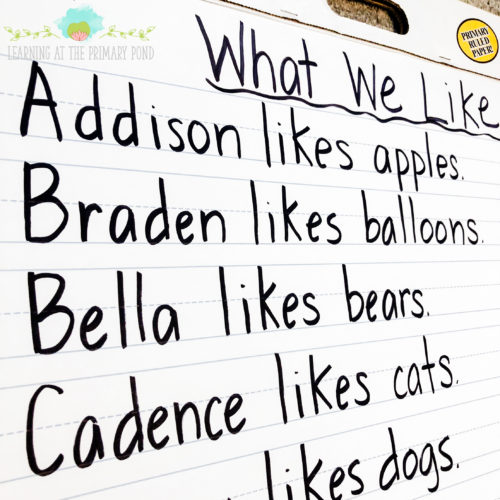 LEARNING AT THE PRIMARY POND
PRIMARY
RULED
PAPER!
What We Like
Addison likes apples.
Braden likes balloons.
Bella likes bears.
Cadence likes cats.
likes dogs.